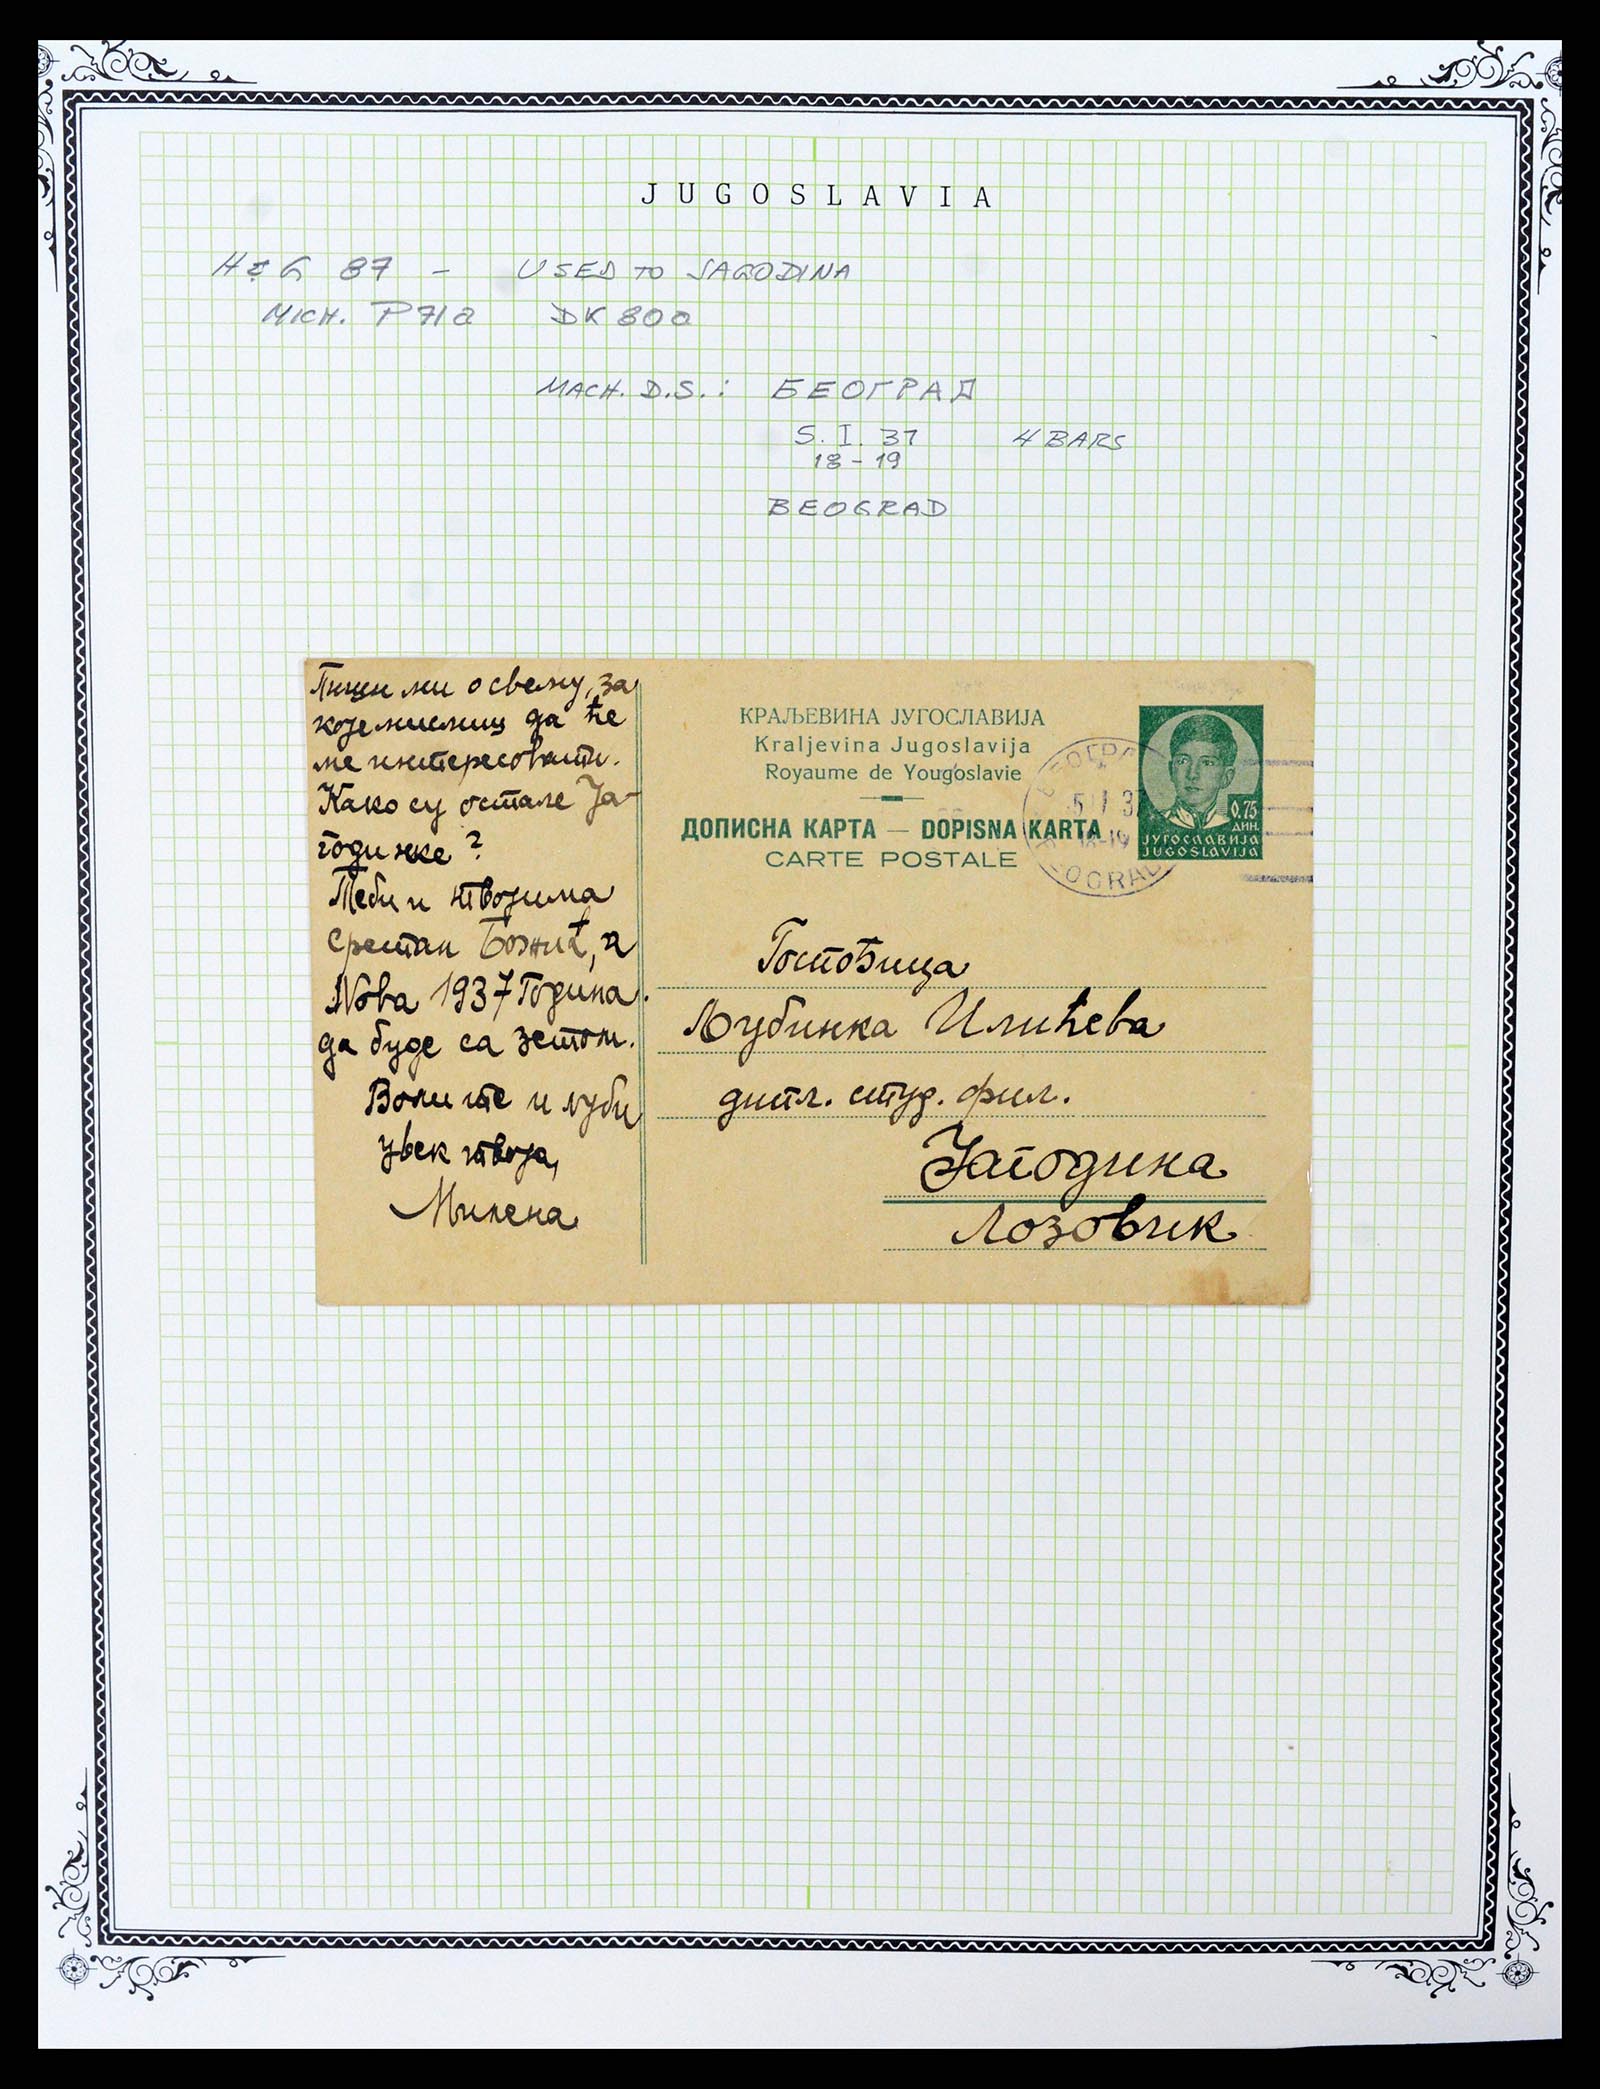 JUGOSLAVIA
H & G 87 - USED TO JAGODINA
MICH. P71a DK 80a
MACH. D.S.: БЕОГРАД
5. I. 37 4 BARS
18-19
BEOGRAD
Пиши ми о свему, за
које мислиш да ће
ме интересовати.
Како су остале Ја-
годинке?
Теби и твојима
сретан Божић, а
Нова 1937 Година
да буде са зетом.
Воли те и љуби
увек твоја,
Милена
КРАЉЕВИНА ЈУГОСЛАВИЈА
Kraljevina Jugoslavija
Royaume de Yougoslavie
ДОПИСНА КАРТА — DOPISNA KARTA
CARTE POSTALE
0.75
ДИН.
ЈУГОСЛАВИЈА
JUGOSLAVIJA
5 I 37
18-19
Госпођица
Љубинка Илићева
дипл. студ. фил.
Јагодина
Лозовик